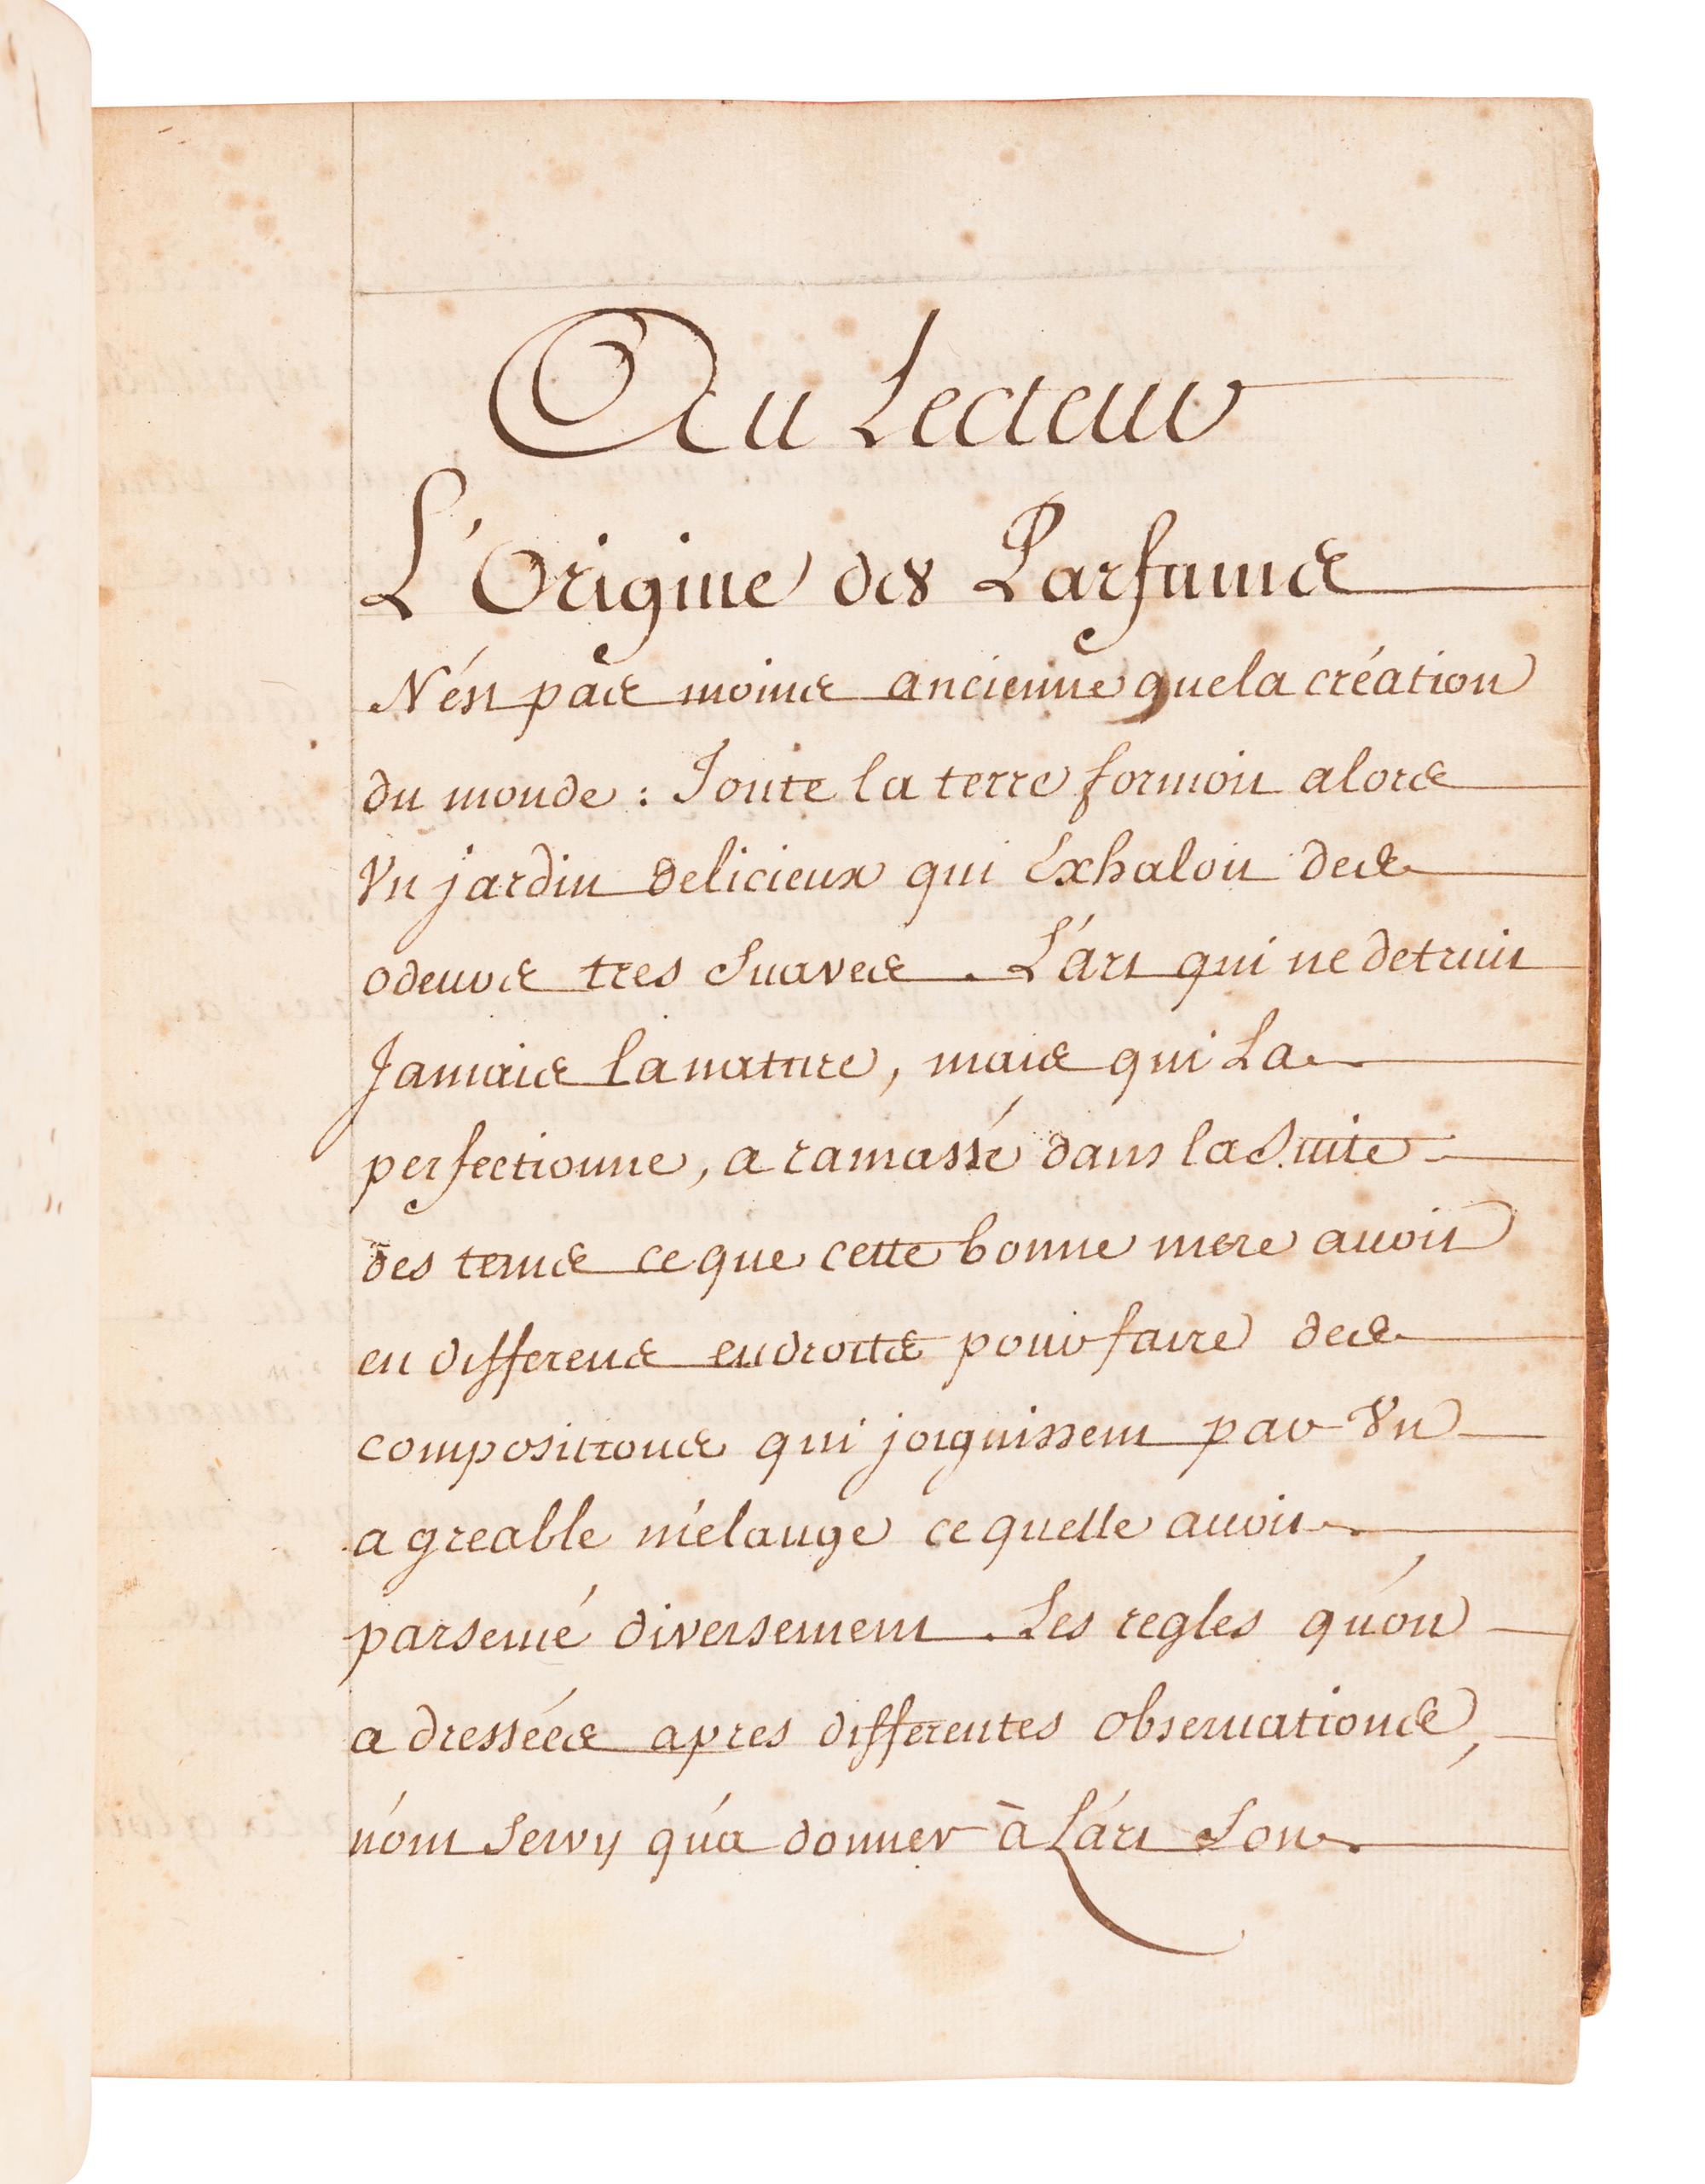 Au Lecteur
L'Origine des Parfums
N'ést pas moins ancienne que la création
du monde : Toute la terre formoit alors
Vn jardin delicieux qui éxhaloit des
odeurs tres Suaves . L'árt qui ne detruit
Jamais la nature, mais qui La
perfectionne, a ramassé dans la Suite
des tems ce que cette bonne mere auoit
en differens endroits pour faire des
compositions qui joignissent par Vn
agreable mélange ce quelle auoit
parsemé diversement . Les regles qu'on
a dressées apres differentes obseruations,
n'ont Servy qu'a donner à L'árt Son